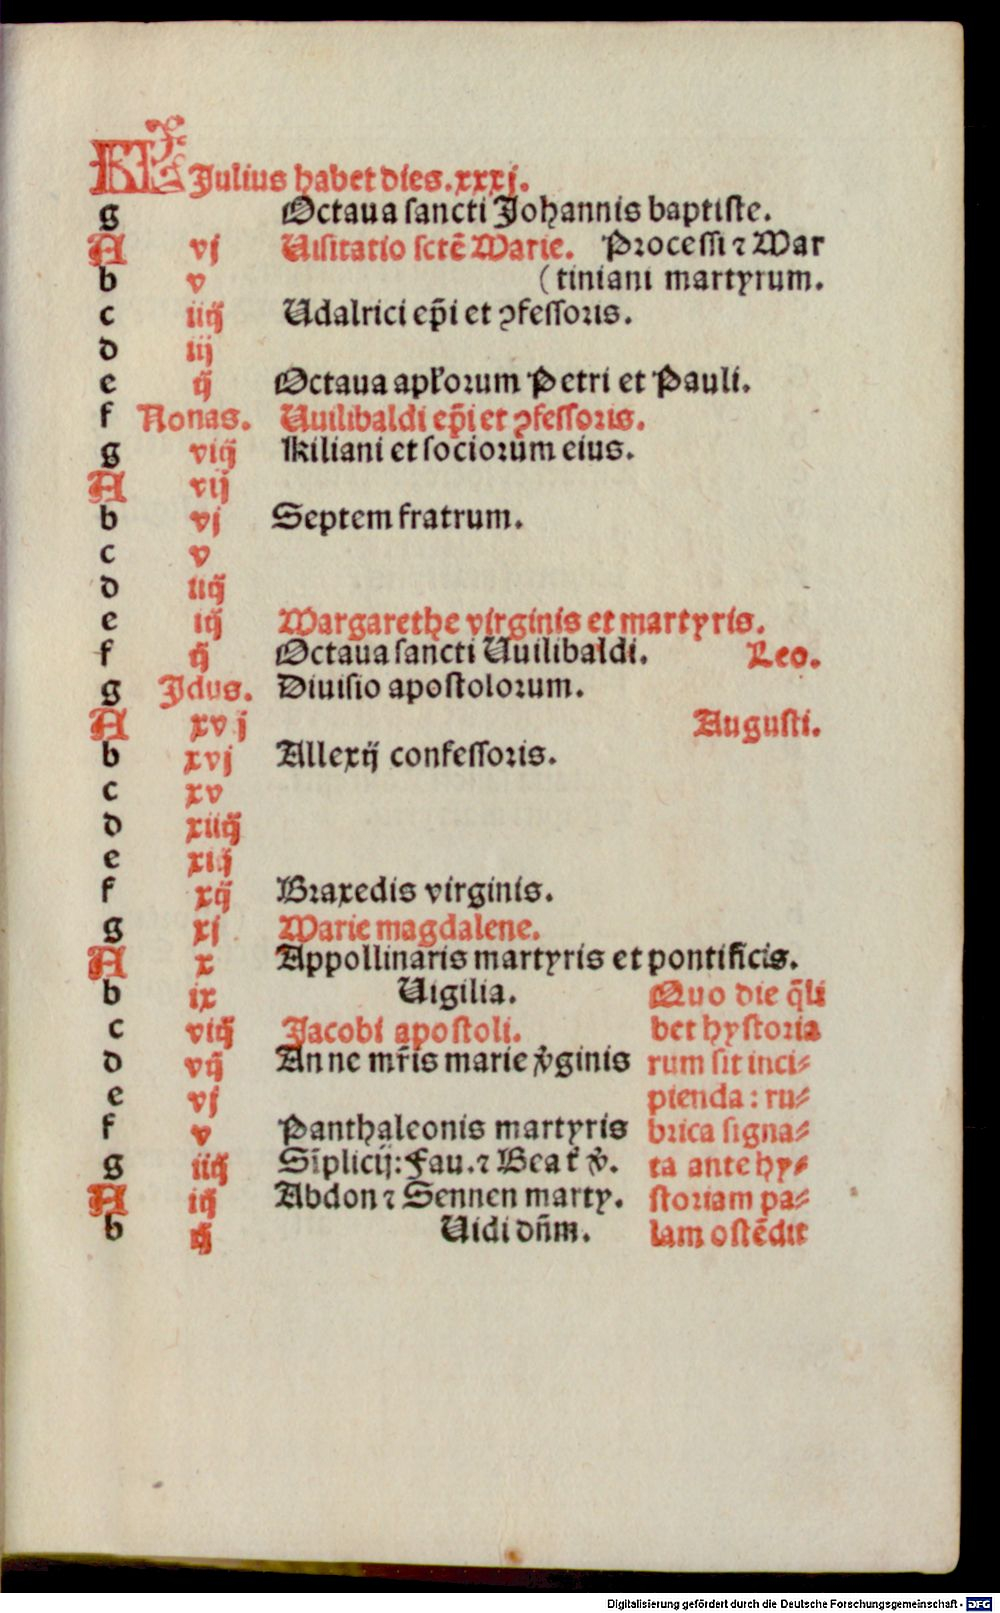 KL Julius habet dies.xxxj.
g Octaua sancti Johannis baptiste.
A vj Uisitatio sctē Marie. Processi ⁊ Mar
b v (tiniani martyrum.
c iiij Udalrici ep̃i et ꝯfessoris.
d iij
e ij Octaua apl'orum Petri et Pauli.
f Nonas. Uuilibaldi ep̃i et ꝯfessoris.
g viij Kiliani et sociorum eius.
A vij
b vj Septem fratrum.
c v
d iiij
e iij Margarethe virginis et martyris.
f ij Octaua sancti Uuilibaldi. Leo.
g Jdus. Diuisio apostolorum.
A xvij Augusti.
b xvj Allexij confessoris.
c xv
d xiiij
e xiij
f xij Braxedis virginis.
g xj Marie magdalene.
A x Appollinaris martyris et pontificis.
b ix Uigilia. Quo die q̃li
c viij Jacobi apostoli. bet hystoria
d vij Anne mr̃is marie v̾ginis rum sit inci⸗
e vj pienda: ru⸗
f v Panthaleonis martyris brica signa⸗
g iiij Sīplicij: Fau. ⁊ Beat' v̾. ta ante hy⸗
A iij Abdon ⁊ Sennen marty. storiam pa⸗
b ij Uidi dñm. lam ostēdit
Digitalisierung gefördert durch die Deutsche Forschungsgemeinschaft - DFG